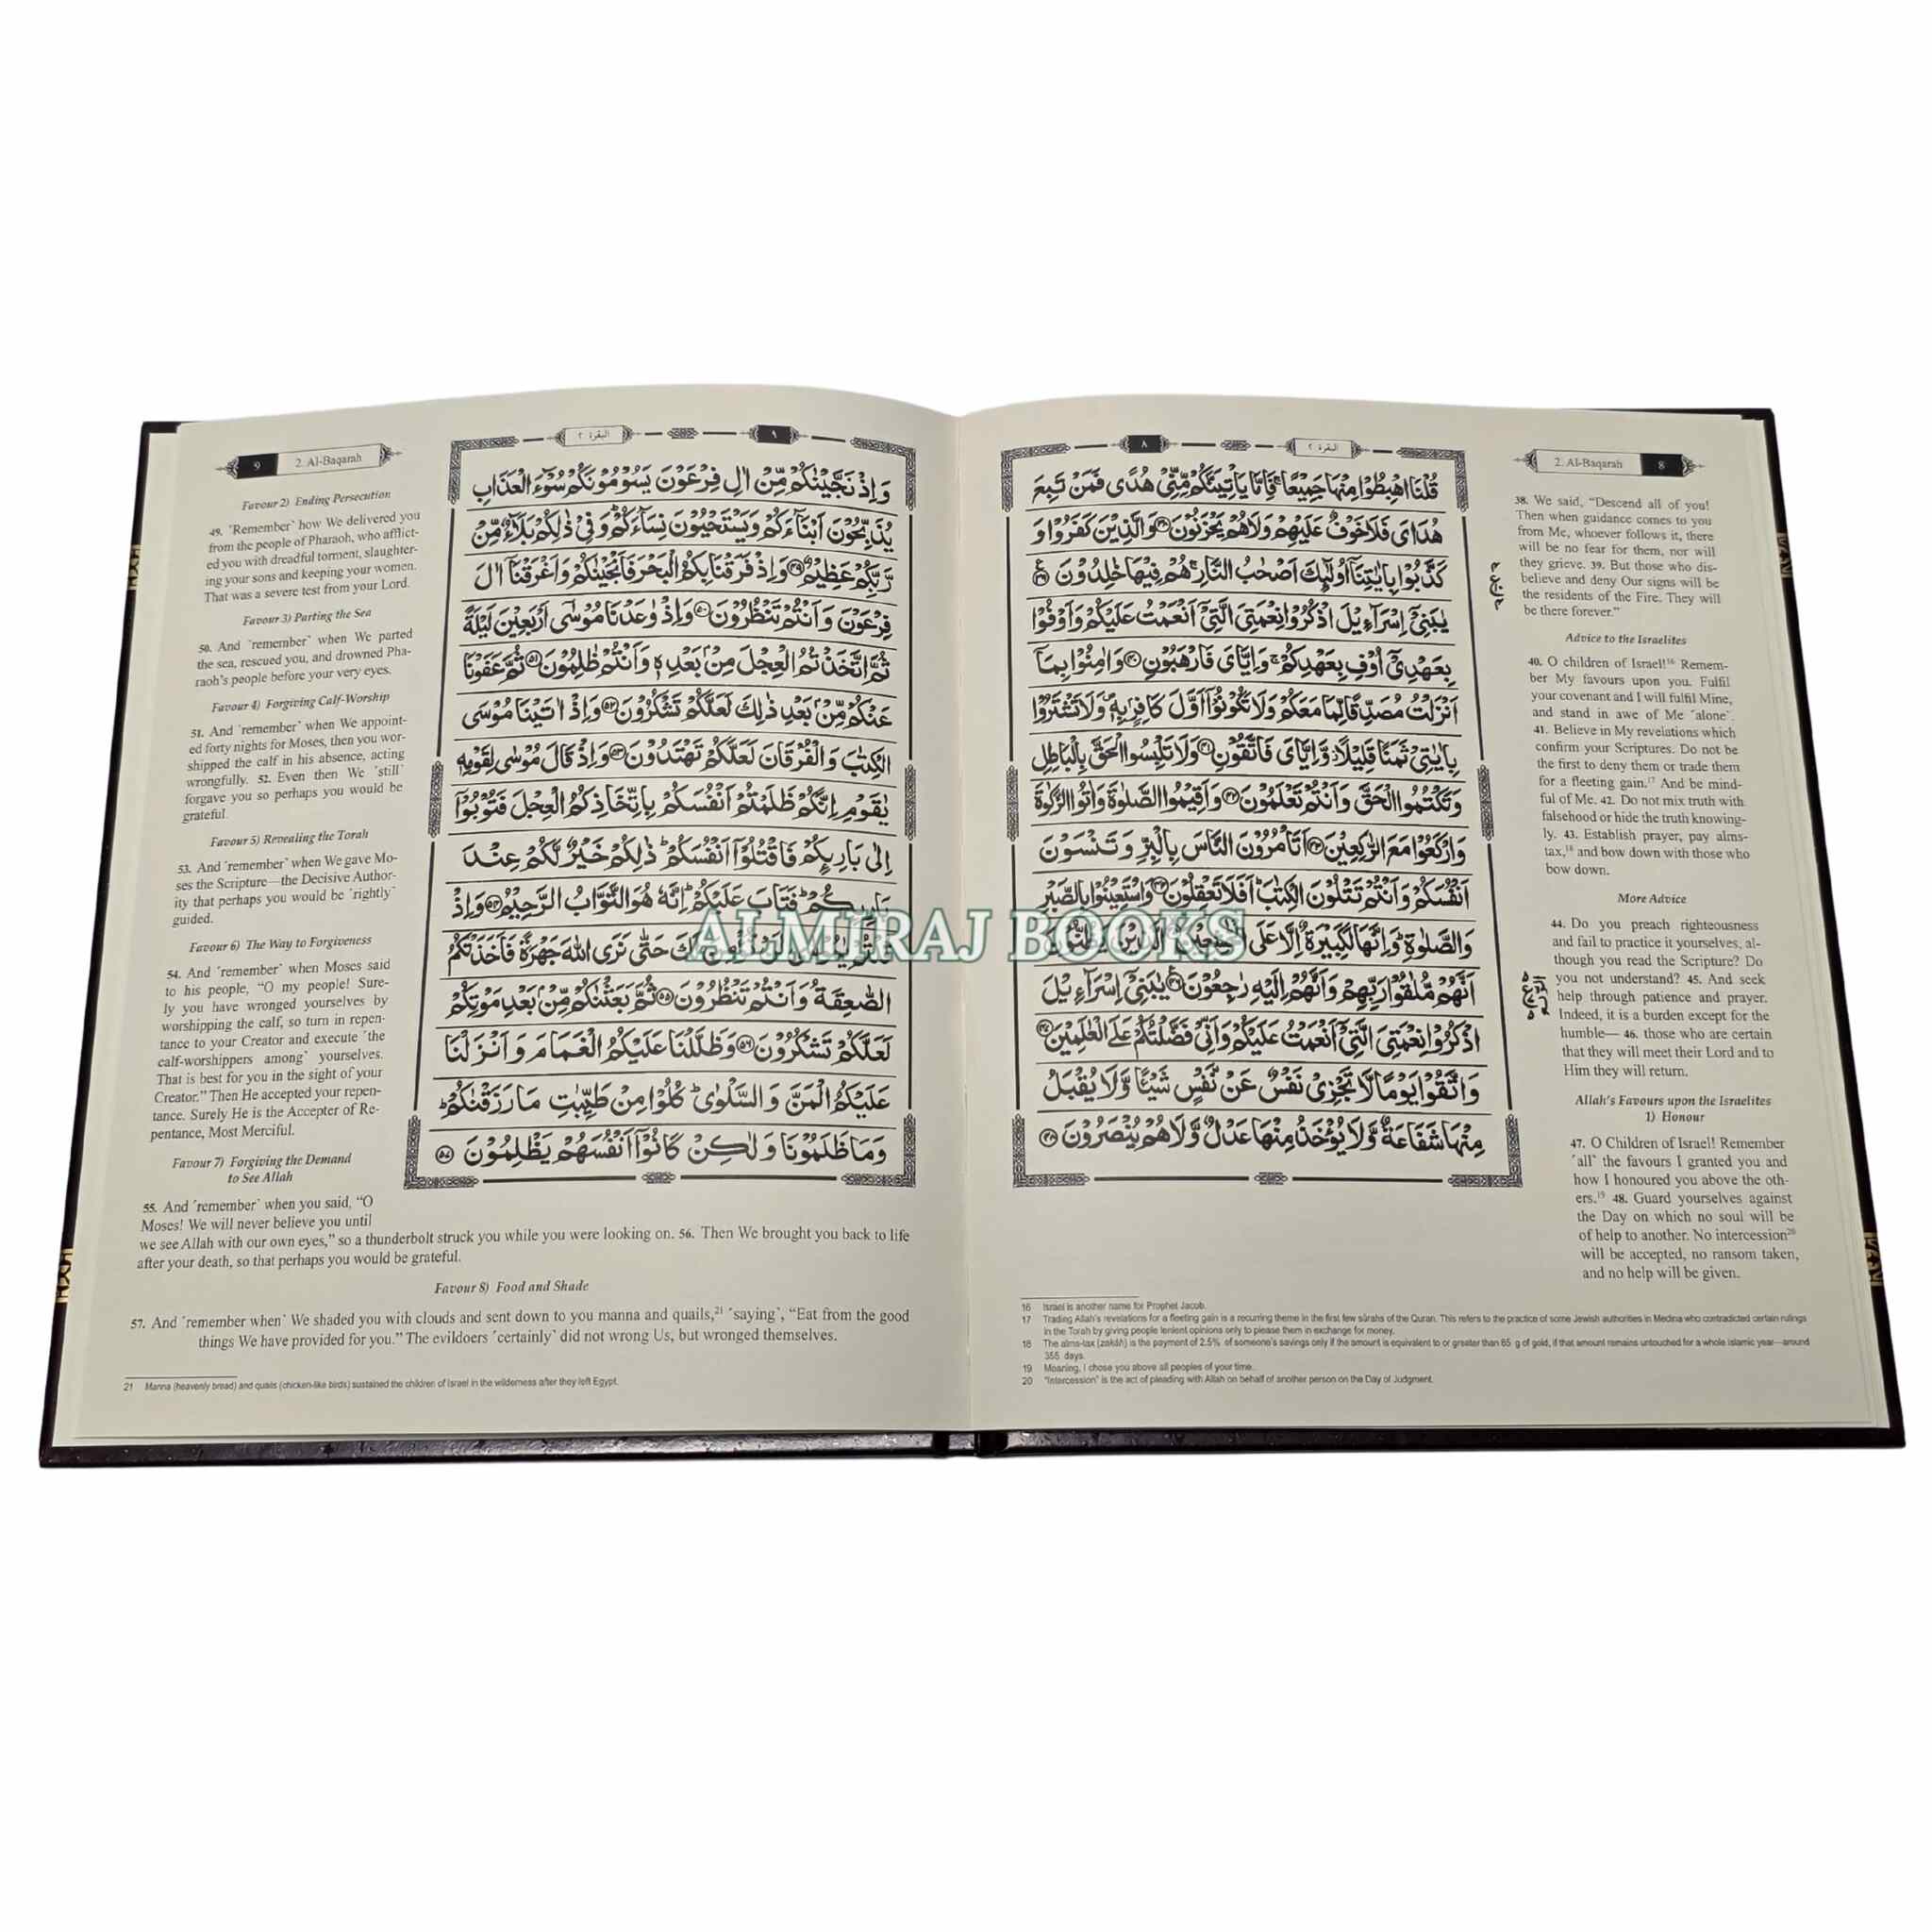 ٨
البقرة ٢
2. Al-Baqarah 8
قُلْنَا اهْبِطُوْا مِنْهَا جَمِيْعًا ۚ فَاِمَّا يَاْتِيَنَّكُمْ مِّنِّيْ هُدًى فَمَنْ تَبِعَ
هُدَايَ فَلَا خَوْفٌ عَلَيْهِمْ وَلَا هُمْ يَحْزَنُوْنَ ٣٨ وَالَّذِيْنَ كَفَرُوْا وَ
كَذَّبُوْا بِاٰيٰتِنَآ اُولٰٓئِكَ اَصْحٰبُ النَّارِ ۚ هُمْ فِيْهَا خٰلِدُوْنَ ٣٩
يٰبَنِيْٓ اِسْرَآءِيْلَ اذْكُرُوْا نِعْمَتِيَ الَّتِيْٓ اَنْعَمْتُ عَلَيْكُمْ وَاَوْفُوْا
بِعَهْدِيْٓ اُوْفِ بِعَهْدِكُمْ ۚ وَاِيَّايَ فَارْهَبُوْنِ ٤٠ وَاٰمِنُوْا بِمَآ
اَنْزَلْتُ مُصَدِّقًا لِّمَا مَعَكُمْ وَلَا تَكُوْنُوْٓا اَوَّلَ كَافِرٍۭ بِهٖ ۪ وَلَا تَشْتَرُوْا
بِاٰيٰتِيْ ثَمَنًا قَلِيْلًا ؗ وَّاِيَّايَ فَاتَّقُوْنِ ٤١ وَلَا تَلْبِسُوا الْحَقَّ بِالْبَاطِلِ
وَتَكْتُمُوا الْحَقَّ وَاَنْتُمْ تَعْلَمُوْنَ ٤٢ وَاَقِيْمُوا الصَّلٰوةَ وَاٰتُوا الزَّكٰوةَ
وَارْكَعُوْا مَعَ الرّٰكِعِيْنَ ٤٣ اَتَاْمُرُوْنَ النَّاسَ بِالْبِرِّ وَتَنْسَوْنَ
اَنْفُسَكُمْ وَاَنْتُمْ تَتْلُوْنَ الْكِتٰبَ ؕ اَفَلَا تَعْقِلُوْنَ ٤٤ وَاسْتَعِيْنُوْا بِالصَّبْرِ
وَالصَّلٰوةِ ؕ وَاِنَّهَا لَكَبِيْرَةٌ اِلَّا عَلَى الَّذِيْنَ
اَنَّهُمْ مُّلٰقُوْا رَبِّهِمْ وَاَنَّهُمْ اِلَيْهِ رٰجِعُوْنَ ٤٦ يٰبَنِيْٓ اِسْرَآءِيْلَ
اذْكُرُوْا نِعْمَتِيَ الَّتِيْٓ اَنْعَمْتُ عَلَيْكُمْ وَاَنِّيْ فَضَّلْتُكُمْ عَلَى الْعٰلَمِيْنَ ٤٧
وَاتَّقُوْا يَوْمًا لَّا تَجْزِيْ نَفْسٌ عَنْ نَّفْسٍ شَيْـًٔا وَّلَا يُقْبَلُ
مِنْهَا شَفَاعَةٌ وَّلَا يُؤْخَذُ مِنْهَا عَدْلٌ وَّلَا هُمْ يُنْصَرُوْنَ ٤٨
38. We said, “Descend all of you!
Then when guidance comes to you
from Me, whoever follows it, there
will be no fear for them, nor will
they grieve. 39. But those who dis-
believe and deny Our signs will be
the residents of the Fire. They will
be there forever.”
Advice to the Israelites
40. O children of Israel!16 Remem-
ber My favours upon you. Fulfil
your covenant and I will fulfil Mine,
and stand in awe of Me ˹alone˺.
41. Believe in My revelations which
confirm your Scriptures. Do not be
the first to deny them or trade them
for a fleeting gain.17 And be mind-
ful of Me. 42. Do not mix truth with
falsehood or hide the truth knowing-
ly. 43. Establish prayer, pay alms-
tax,18 and bow down with those who
bow down.
More Advice
44. Do you preach righteousness
and fail to practice it yourselves, al-
though you read the Scripture? Do
you not understand? 45. And seek
help through patience and prayer.
Indeed, it is a burden except for the
humble— 46. those who are certain
that they will meet their Lord and to
Him they will return.
Allah’s Favours upon the Israelites
1) Honour
47. O Children of Israel! Remember
˹all˺ the favours I granted you and
how I honoured you above the oth-
ers.19 48. Guard yourselves against
the Day on which no soul will be
of help to another. No intercession20
will be accepted, no ransom taken,
and no help will be given.
16 Israel is another name for Prophet Jacob.
17 Trading Allah’s revelations for a fleeting gain is a recurring theme in the first few sûrahs of the Quran. This refers to the practice of some Jewish authorities in Medina who contradicted certain rulings
in the Torah by giving people lenient opinions only to please them in exchange for money.
18 The alms-tax (zakâh) is the payment of 2.5% of someone’s savings only if the amount is equivalent to or greater than 85 g of gold, if that amount remains untouched for a whole Islamic year—around
355 days.
19 Meaning, I chose you above all peoples of your time.
20 “Intercession” is the act of pleading with Allah on behalf of another person on the Day of Judgment.
٩
البقرة ٢
9 2. Al-Baqarah
وَاِذْ نَجَّيْنٰكُمْ مِّنْ اٰلِ فِرْعَوْنَ يَسُوْمُوْنَكُمْ سُوْٓءَ الْعَذَابِ
يُذَبِّحُوْنَ اَبْنَآءَكُمْ وَيَسْتَحْيُوْنَ نِسَآءَكُمْ ؕ وَفِيْ ذٰلِكُمْ بَلَآءٌ مِّنْ
رَّبِّكُمْ عَظِيْمٌ ٤٩ وَاِذْ فَرَقْنَا بِكُمُ الْبَحْرَ فَاَنْجَيْنٰكُمْ وَاَغْرَقْنَآ اٰلَ
فِرْعَوْنَ وَاَنْتُمْ تَنْظُرُوْنَ ٥٠ وَاِذْ وٰعَدْنَا مُوْسٰٓى اَرْبَعِيْنَ لَيْلَةً
ثُمَّ اتَّخَذْتُمُ الْعِجْلَ مِنْۢ بَعْدِهٖ وَاَنْتُمْ ظٰلِمُوْنَ ٥١ ثُمَّ عَفَوْنَا
عَنْكُمْ مِّنْۢ بَعْدِ ذٰلِكَ لَعَلَّكُمْ تَشْكُرُوْنَ ٥٢ وَاِذْ اٰتَيْنَا مُوْسَى
الْكِتٰبَ وَالْفُرْقَانَ لَعَلَّكُمْ تَهْتَدُوْنَ ٥٣ وَاِذْ قَالَ مُوْسٰى لِقَوْمِهٖ
يٰقَوْمِ اِنَّكُمْ ظَلَمْتُمْ اَنْفُسَكُمْ بِاتِّخَاذِكُمُ الْعِجْلَ فَتُوْبُوْٓا
اِلٰى بَارِئِكُمْ فَاقْتُلُوْٓا اَنْفُسَكُمْ ؕ ذٰلِكُمْ خَيْرٌ لَّكُمْ عِنْدَ
بَارِئِكُمْ ؕ فَتَابَ عَلَيْكُمْ ؕ اِنَّهٗ هُوَ التَّوَّابُ الرَّحِيْمُ ٥٤ وَاِذْ
حَتّٰى نَرَى اللّٰهَ جَهْرَةً فَاَخَذَتْكُمُ
الصّٰعِقَةُ وَاَنْتُمْ تَنْظُرُوْنَ ٥٥ ثُمَّ بَعَثْنٰكُمْ مِّنْۢ بَعْدِ مَوْتِكُمْ
لَعَلَّكُمْ تَشْكُرُوْنَ ٥٦ وَظَلَّلْنَا عَلَيْكُمُ الْغَمَامَ وَاَنْزَلْنَا
عَلَيْكُمُ الْمَنَّ وَالسَّلْوٰى ؕ كُلُوْا مِنْ طَيِّبٰتِ مَا رَزَقْنٰكُمْ ؕ
وَمَا ظَلَمُوْنَا وَلٰكِنْ كَانُوْٓا اَنْفُسَهُمْ يَظْلِمُوْنَ ٥٧
Favour 2) Ending Persecution
49. ˹Remember˺ how We delivered you
from the people of Pharaoh, who afflict-
ed you with dreadful torment, slaughter-
ing your sons and keeping your women.
That was a severe test from your Lord.
Favour 3) Parting the Sea
50. And ˹remember˺ when We parted
the sea, rescued you, and drowned Pha-
raoh’s people before your very eyes.
Favour 4) Forgiving Calf-Worship
51. And ˹remember˺ when We appoint-
ed forty nights for Moses, then you wor-
shipped the calf in his absence, acting
wrongfully. 52. Even then We ˹still˺
forgave you so perhaps you would be
grateful.
Favour 5) Revealing the Torah
53. And ˹remember˺ when We gave Mo-
ses the Scripture—the Decisive Author-
ity that perhaps you would be ˹rightly˺
guided.
Favour 6) The Way to Forgiveness
54. And ˹remember˺ when Moses said
to his people, “O my people! Sure-
ly you have wronged yourselves by
worshipping the calf, so turn in repen-
tance to your Creator and execute ˹the
calf-worshippers among˺ yourselves.
That is best for you in the sight of your
Creator.” Then He accepted your repen-
tance. Surely He is the Accepter of Re-
pentance, Most Merciful.
Favour 7) Forgiving the Demand
to See Allah
55. And ˹remember˺ when you said, “O
Moses! We will never believe you until
we see Allah with our own eyes,” so a thunderbolt struck you while you were looking on. 56. Then We brought you back to life
after your death, so that perhaps you would be grateful.
Favour 8) Food and Shade
57. And ˹remember when˺ We shaded you with clouds and sent down to you manna and quails,21 ˹saying˺, “Eat from the good
things We have provided for you.” The evildoers ˹certainly˺ did not wrong Us, but wronged themselves.
21 Manna (heavenly bread) and quails (chicken-like birds) sustained the children of Israel in the wilderness after they left Egypt.
ALMIRAJ BOOKS